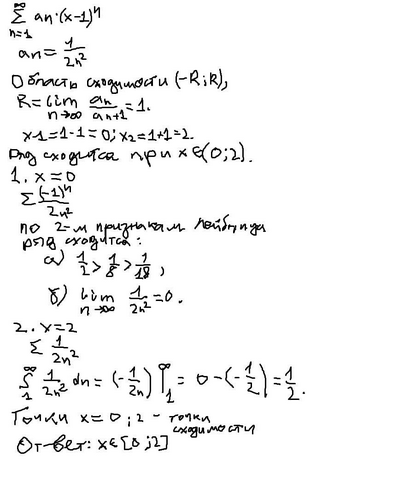 ∞
∑ an·(x-1)ⁿ
n=1
an = 1/2n²
Область сходимости (-R;R),
R = lim n→∞ an/an+1 = 1.
x-1=1-1=0; x2=1+1=2.
Ряд сходится при x∈(0;2).
1. x=0
∑ (-1)ⁿ/2n²
по 2-м признакам Лейбница
ряд сходится:
а) 1/2 > 1/8 > 1/18,
б) lim n→∞ 1/2n² = 0.
2. x=2
∑ 1/2n²
∫₁^∞ 1/2n² dn = (-1/2n)|₁^∞ = 0-(-1/2) = 1/2.
Точки x=0;2 - точки
сходимости
Ответ: x∈[0;2]